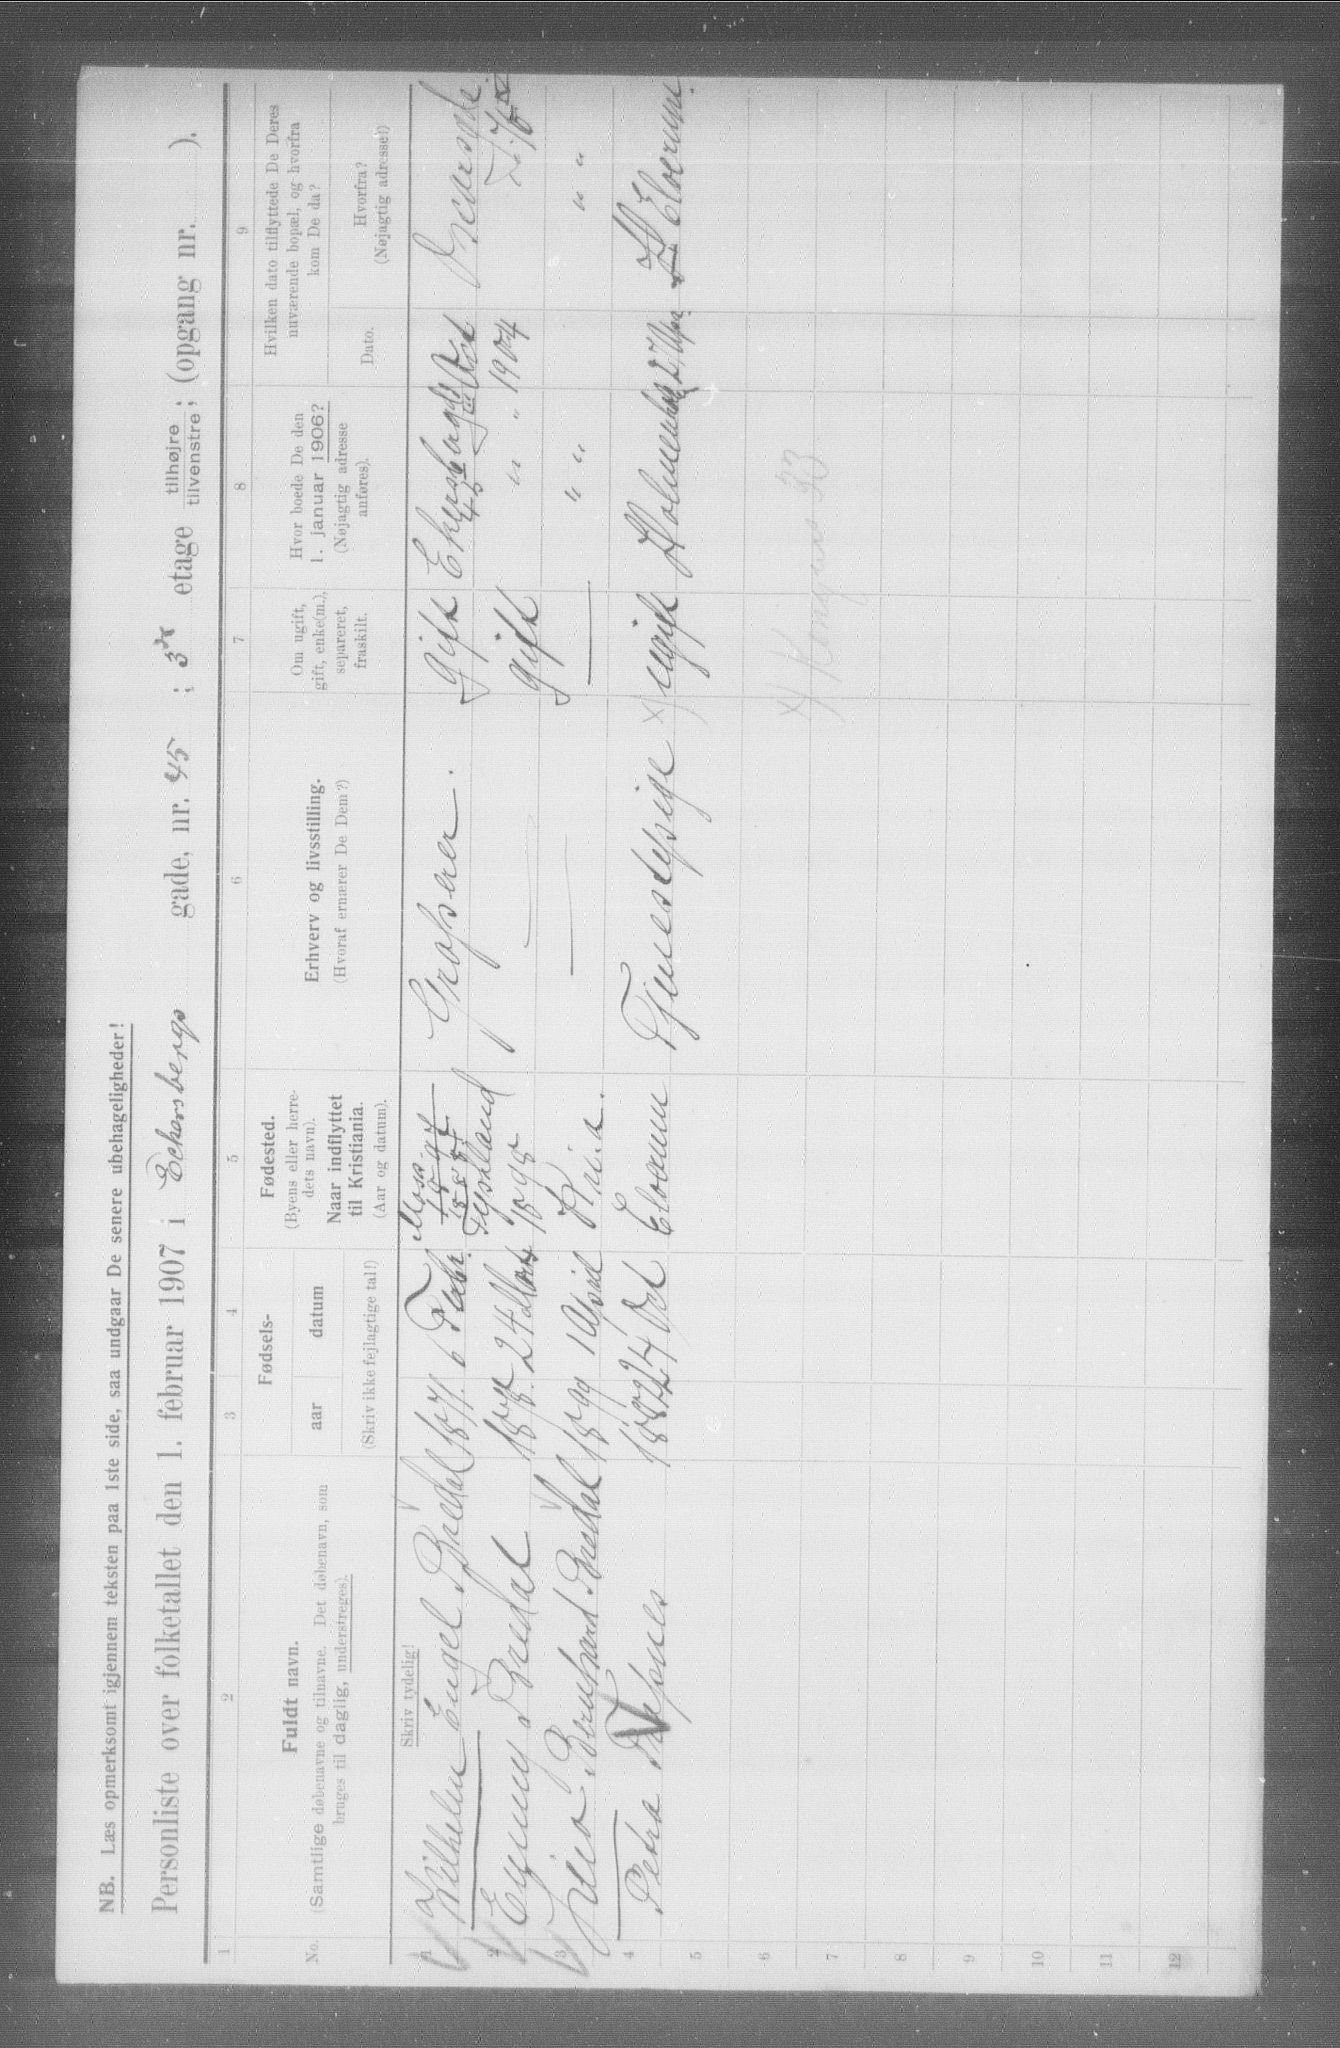 NB. Læs opmerksomt igjennem teksten paa 1ste side, saa undgaar De senere ubehageligheder!
Personliste over folketallet den 1. februar 1907 i Eckersbergs gade, nr. 45 ; 3die etage tilhøjre / tilvenstre ; (opgang nr. ).
1 2 3 4 5 6 7 8 9
No.
Fuldt navn.
(Samtlige døbenavne og tilnavne. Det døbenavn, som
bruges til daglig, understreges).
Skriv tydelig!
Fødsels-
aar datum
(Skriv ikke fejlagtige tal!)
Fødested.
(Byens eller herre-
dets navn).
Naar indflyttet
til Kristiania.
(Aar og datum).
Erhverv og livsstilling.
(Hvoraf ernærer De Dem?)
Om ugift,
gift, enke(m.),
separeret,
fraskilt.
Hvor boede De den
1. januar 1906?
(Nøjagtig adresse
anføres).
Hvilken dato tilflyttede De Deres
nuværende bopæl, og hvorfra
kom De da?
Dato.
Hvorfra?
(Nøjagtig adresse!)
1 Wilhelm Engel Bredal 1871. 6 Febr. Moss. Grosserer. gift
2 Bredal 24 Marts Tyskland 1898 gift " " 1904
3 Bernhard Bredal 1899 1 April Kria. " " " "
4 Petra 1882 24 Elverum Tjenestepige x) ugift Elverum
x) 33
5
6
7
8
9
10
11
12